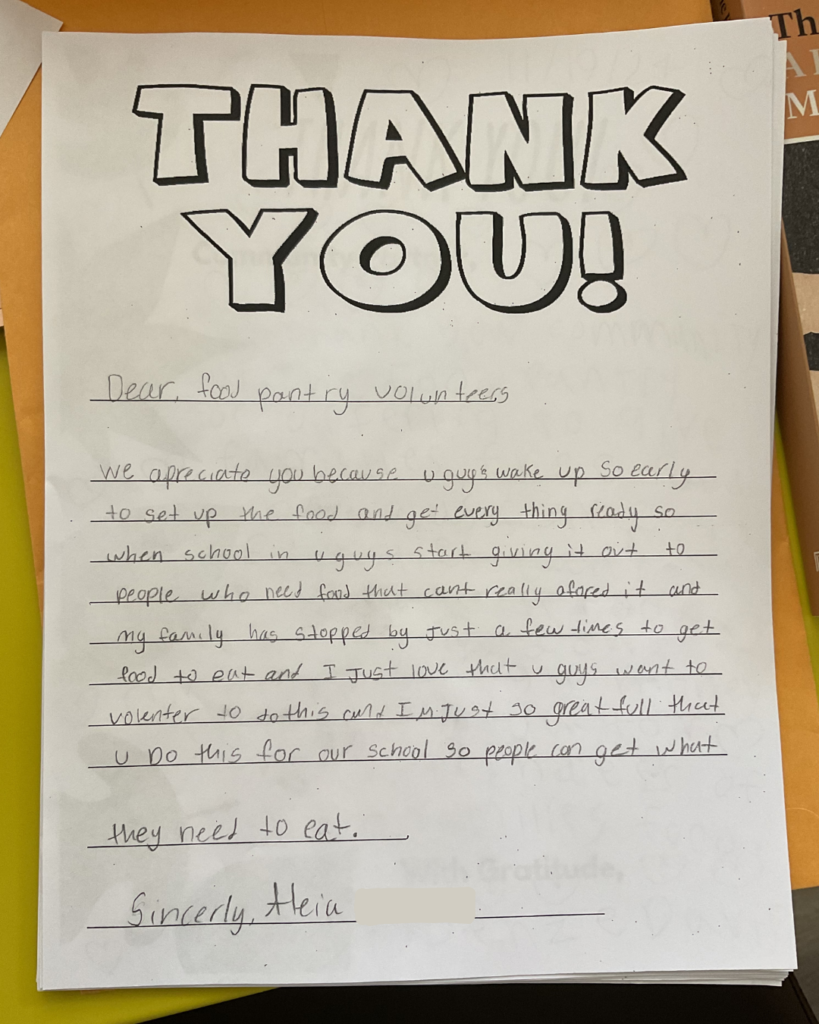 THANK
YOU!
Dear, food pantry volunteers
We apreciate you because u guys wake up so early
to set up the food and get every thing ready so
when school in u guys start giving it out to
people who need food that cant really afored it and
my family has stopped by Just a few times to get
food to eat and I Just love that u guys want to
volenter to do this and Im Just so greatfull that
u Do this for our school so people can get what
they need to eat.
Sincerly, Aleia
Th
M
With Gratitude,